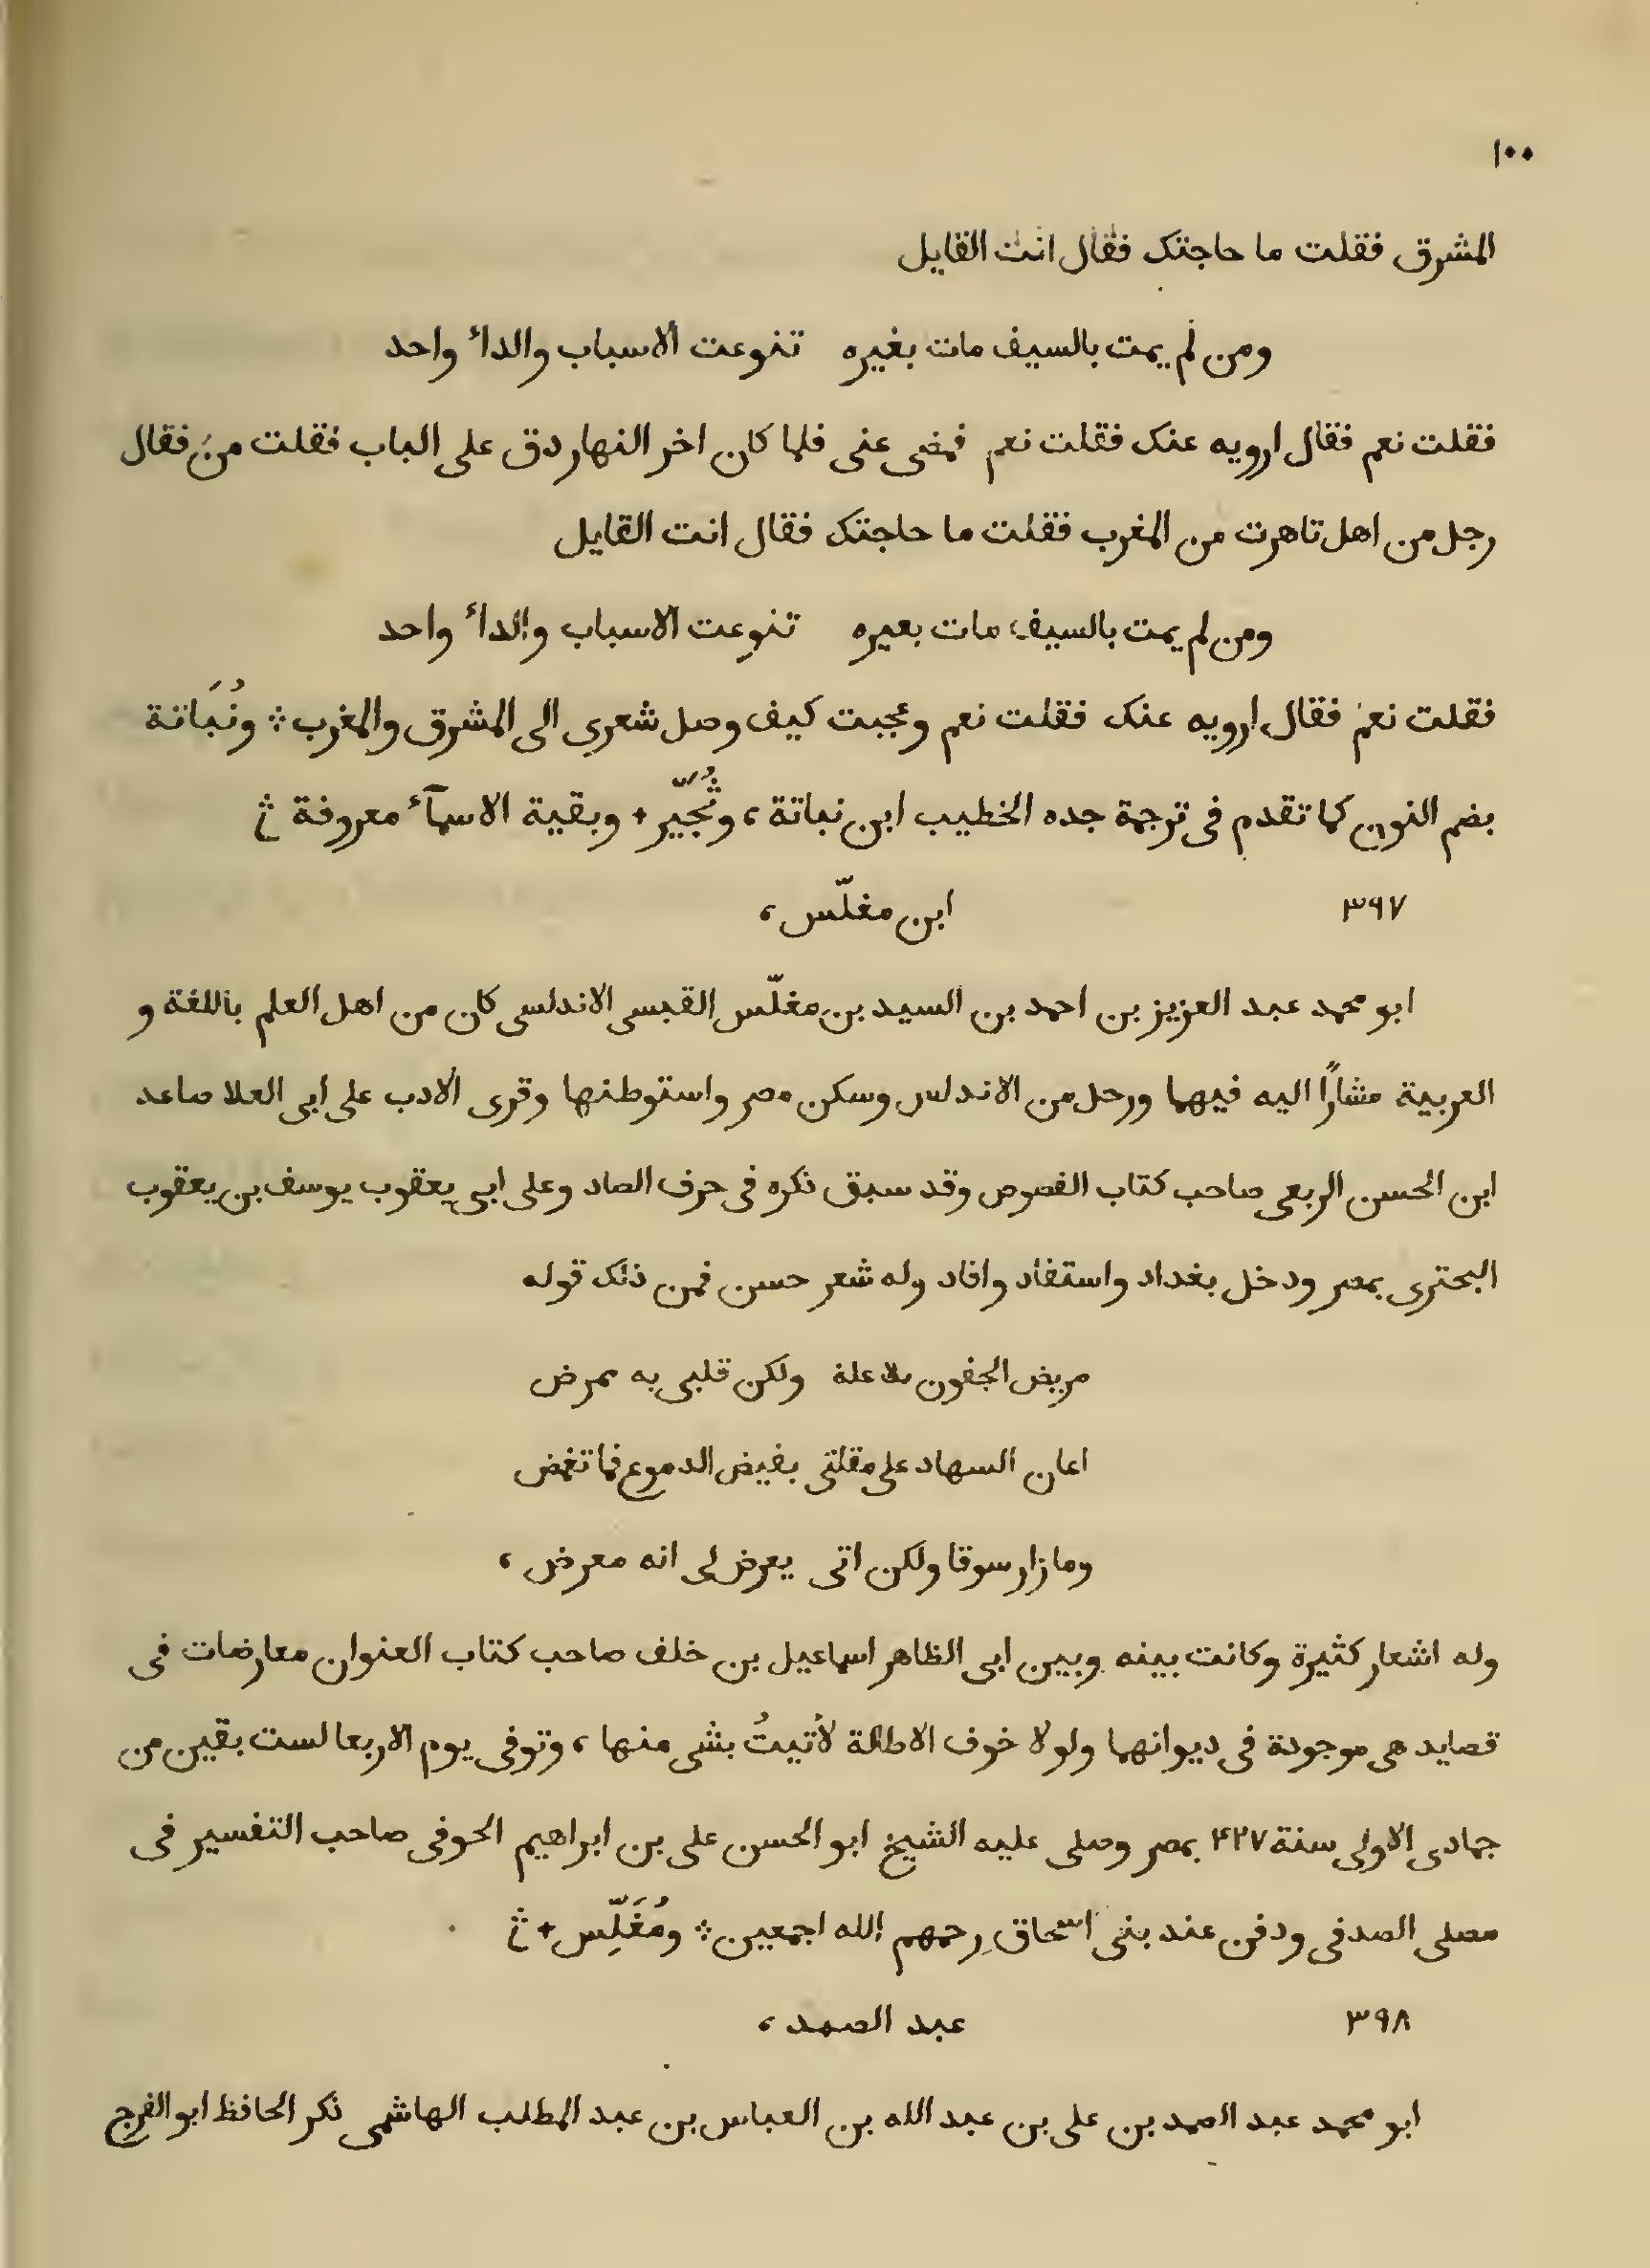 ١٠٠
المشرق فقلت ما حاجتك فقال انت القايل
ومن لم يمت بالسيف مات بغيره تنوعت الاسباب والداء واحد
فقلت نعم فقال ارويه عنك فقلت نعم فمضى عنى فلما كان اخر النهار دق على الباب فقلت من فقال
رجل من اهل تاهرت من المغرب فقلت ما حاجتك فقال انت القايل
ومن لم يمت بالسيف مات بعيره تنوعت الاسباب والداء واحد
فقلت نعم فقال ارويه عنك فقلت نعم وعجبت كيف وصل شعرى الى المشرق والمغرب ⁘ ونُبَاتة
بضم النون كما تقدم فى ترجمة جده الخطيب ابن نباتة ، وثُجَيّر + وبقية الاسمآء معروفة ثم
٣٩٧ ابن مغلّس ،
ابو محمد عبد العزيز بن احمد بن السيد بن مغلّس القيسى الاندلسى كان من اهل العلم باللغة و
العربية مشارًا اليه فيهما ورحل من الاندلس وسكن مصر واستوطنها وقرى الادب على ابى العلا صاعد
ابن الحسن الربعى صاحب كتاب الفصوص وقد سبق ذكره فى حرف الصاد وعلى ابى يعقوب يوسف بن يعقوب
البحترى بمصر ودخل بغداد واستفاد وافاد وله شعر حسن فمن ذلك قوله
مريض الجفون بلا علة ولكن قلبى به ممرض
اعان السهاد على مقلتى بفيض الدموع فما تغمض
وما زار سوقا ولكن اتى يعرض لى انه معرض ،
وله اشعار كثيرة وكانت بينه وبين ابى الظاهر اسماعيل بن خلف صاحب كتاب العنوان معارضات فى
قصايد هى موجودة فى ديوانهما ولولا خوف الاطالة لأتيتُ بشى منها ، وتوفى يوم الاربعا لست بقين من
جمادى الاولى سنة ٤٢٧ بمصر وصلى عليه الشيخ ابو الحسن على بن ابراهيم الحوفى صاحب التفسير فى
مصلى الصدفى ودفن عند بنى اسحاق رحمهم الله اجمعين ⁘ ومُغَلِّس +
٣٩٨ عبد الصمد ،
ابو محمد عبد الصمد بن على بن عبد الله بن العباس بن عبد المطلب الهاشمى ذكر الحافظ ابو الفرج